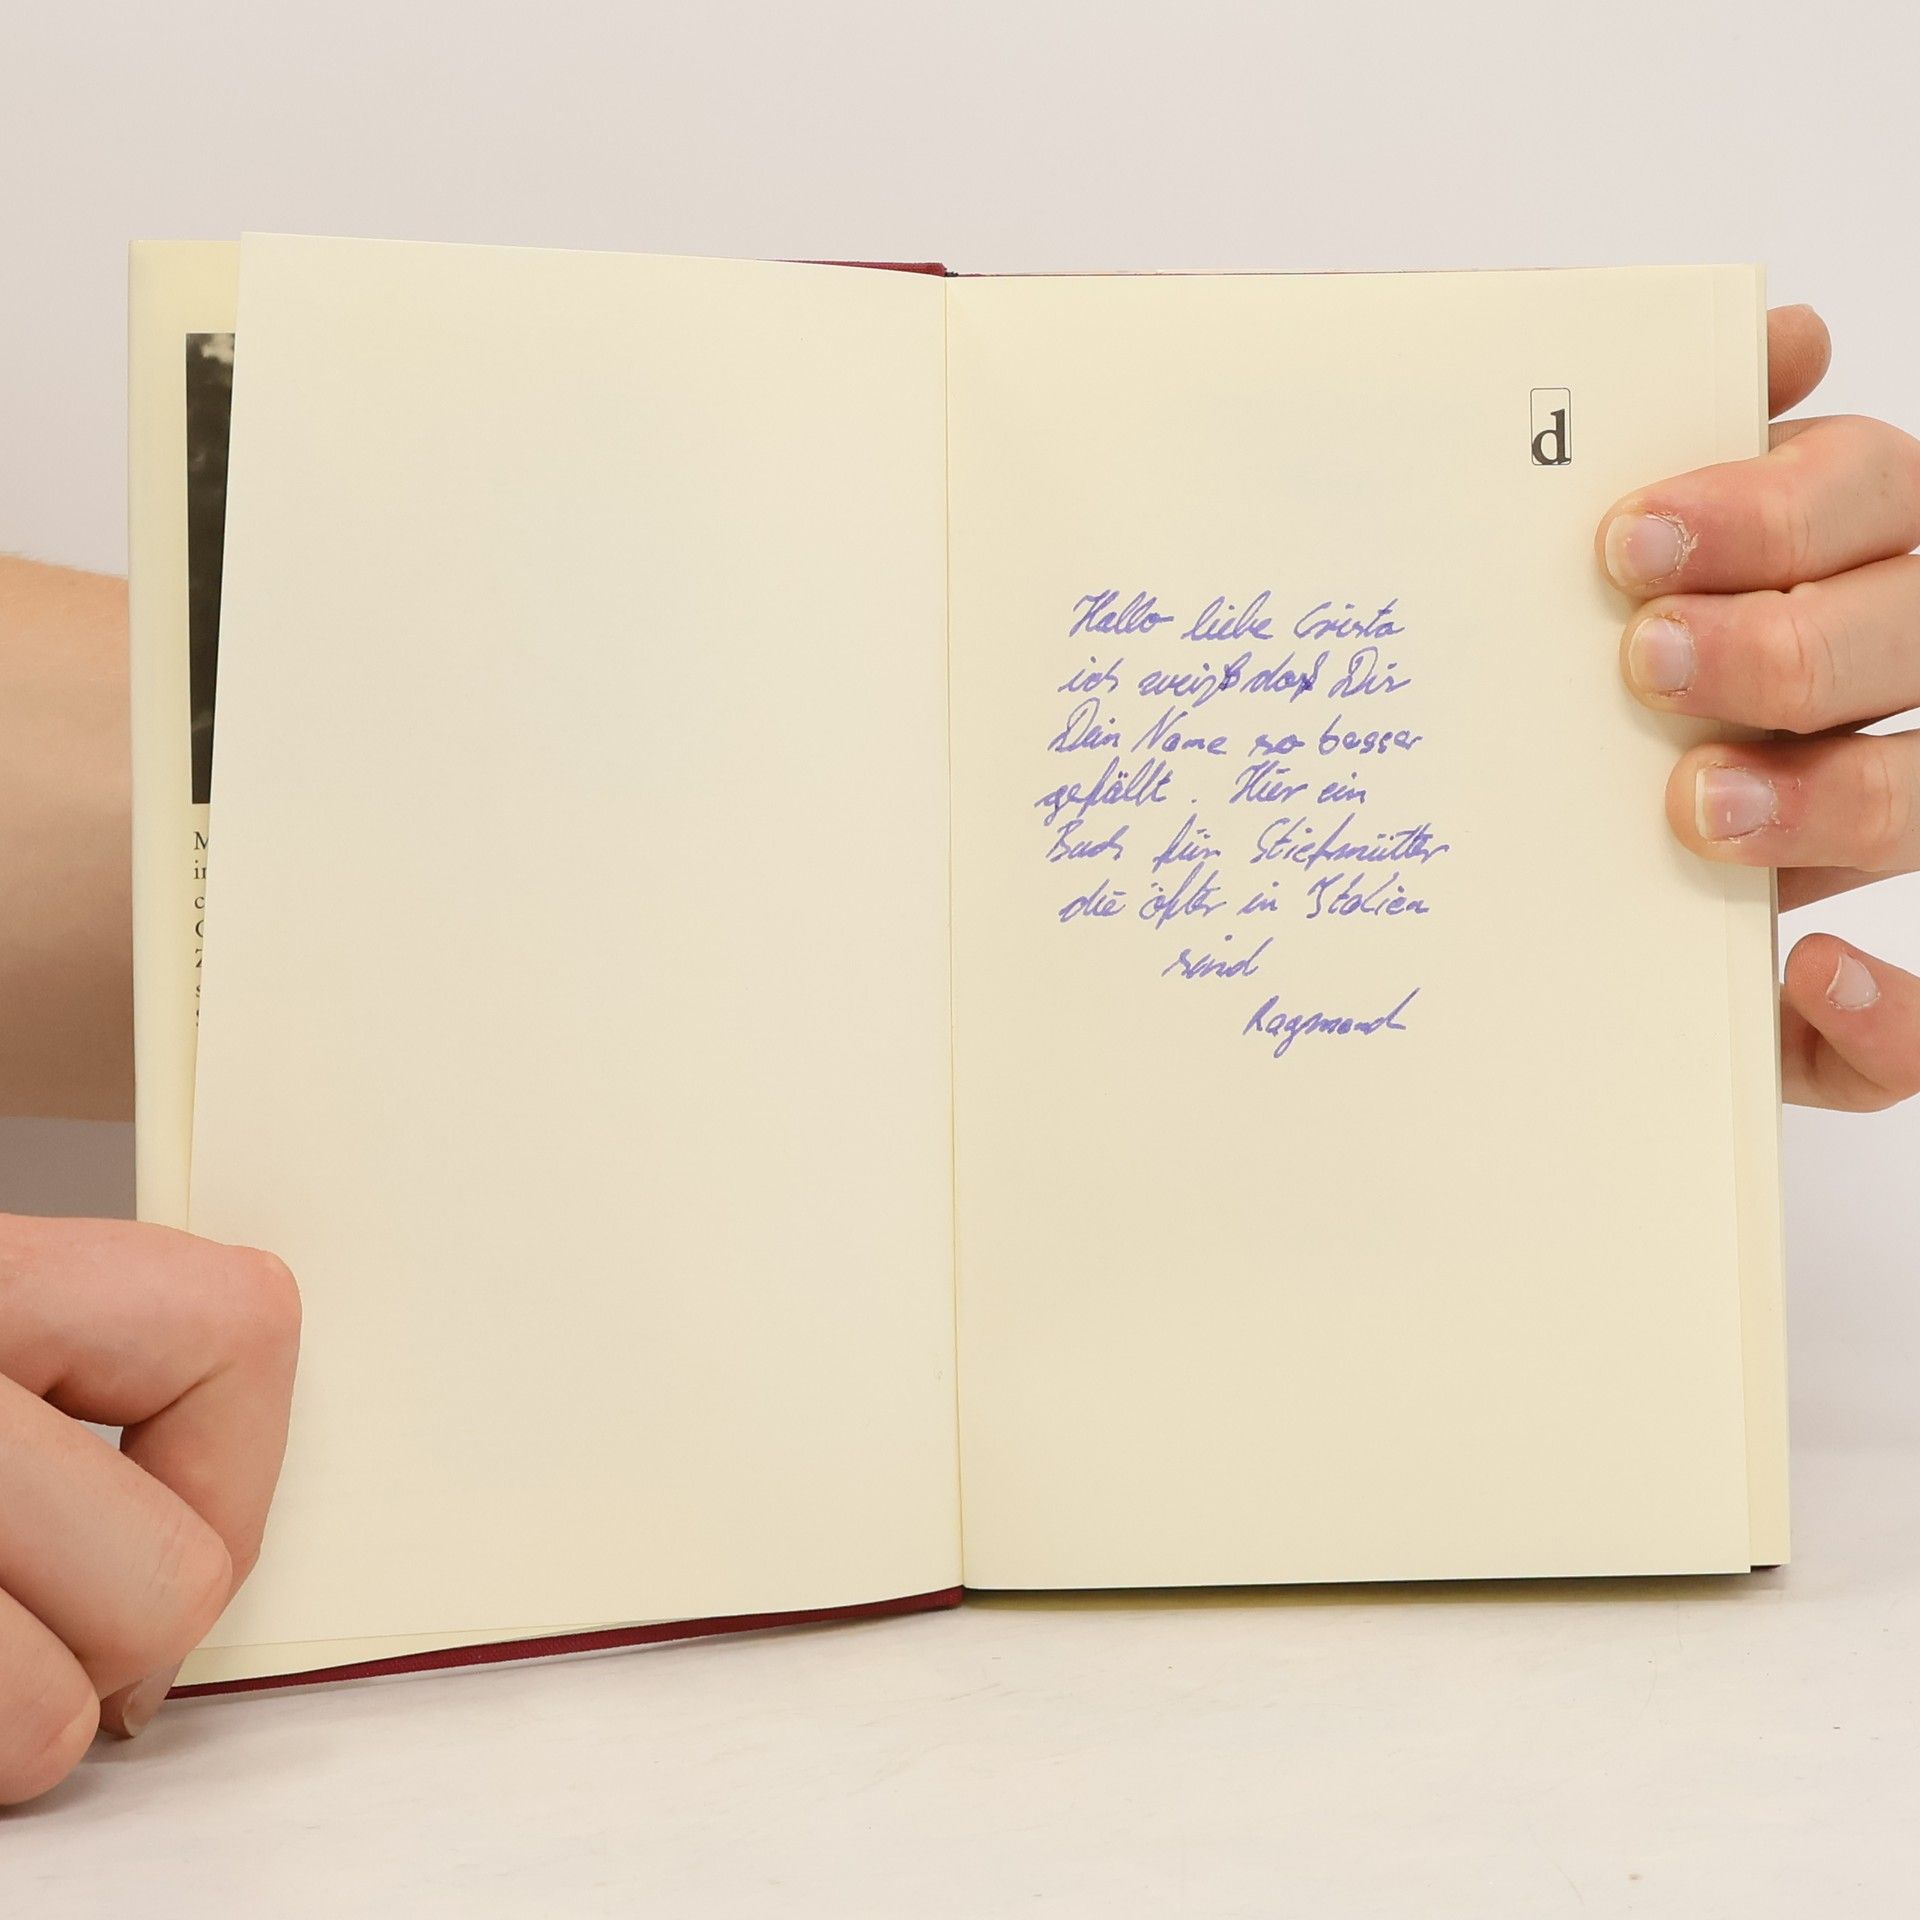 d
Hallo liebe Crista
ich weiß daß Dir
Dein Name so besser
gefällt. Hier ein
Buch für Stiefmütter
die öfter in Italien
sind
Raymond
M
in
c